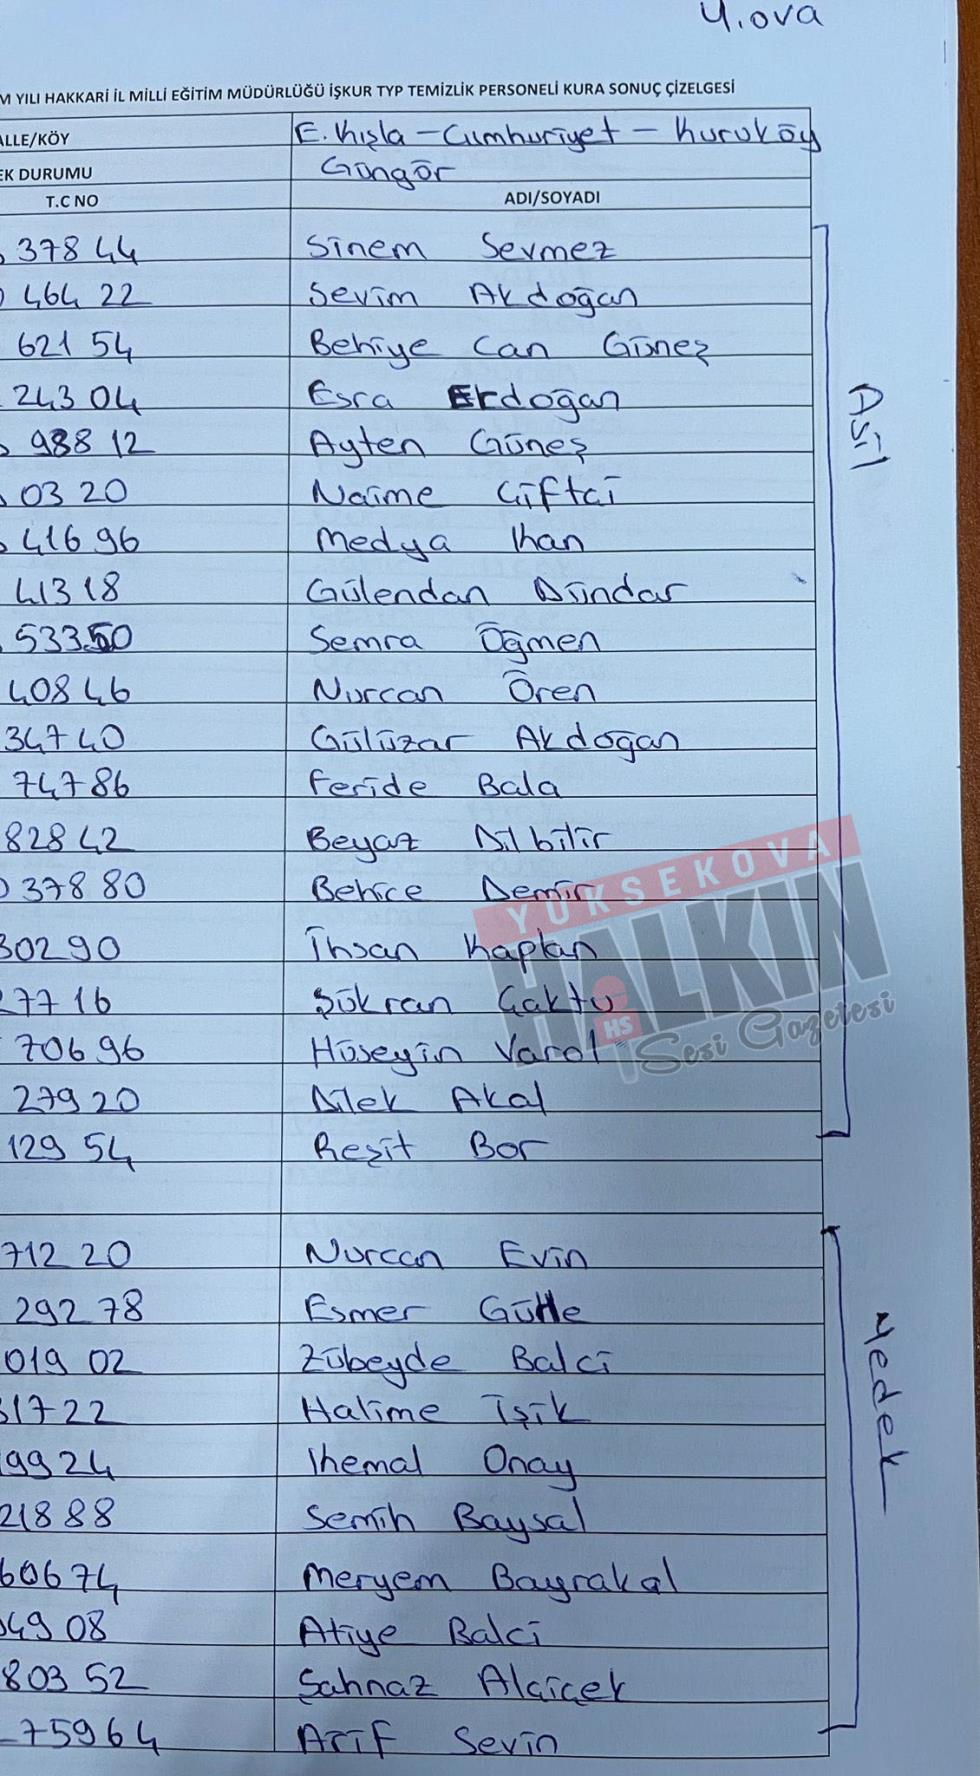 Y.ova
M YILI HAKKARİ İL MİLLİ EĞİTİM MÜDÜRLÜĞÜ İŞKUR TYP TEMİZLİK PERSONELİ KURA SONUÇ ÇİZELGESİ
ALLE/KÖY E.Kışla - Cumhuriyet - Kuruköy
EK DURUMU Güngör
T.C NO ADI/SOYADI
378 44 Sinem Sevmez
464 22 Sevim Akdoğan
621 54 Behiye Can Güneş
243 04 Esra Erdoğan
988 12 Ayten Güneş
03 20 Naime Çiftci
416 96 Medya Ihan
413 18 Gülendan Dündar
533 50 Semra Öğmen
408 46 Nurcan Ören
347 40 Gülüzar Akdoğan
747 86 Feride Bala
828 42 Beyaz Dilbilir
378 80 Behice Demir
302 90 İhsan Kaplan
277 16 Şükran Çaktu
706 96 Hüseyin Varol
279 20 Dilek Akal
129 54 Reşit Bor
Asil
712 20 Nurcan Evin
292 78 Esmer Gülle
019 02 Zübeyde Balci
317 22 Halime Işik
99 24 Ihemal Onay
218 88 Semih Baysal
606 74 Meryem Bayrakal
49 08 Atiye Balci
803 52 Şahnaz Alçiçek
759 64 Arif Sevin
Yedek
YÜKSEKOVA
HALKIN
HS
Sesi Gazetesi